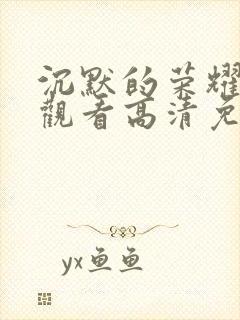 沉默的荣耀
觀看高清免
yx鱼鱼